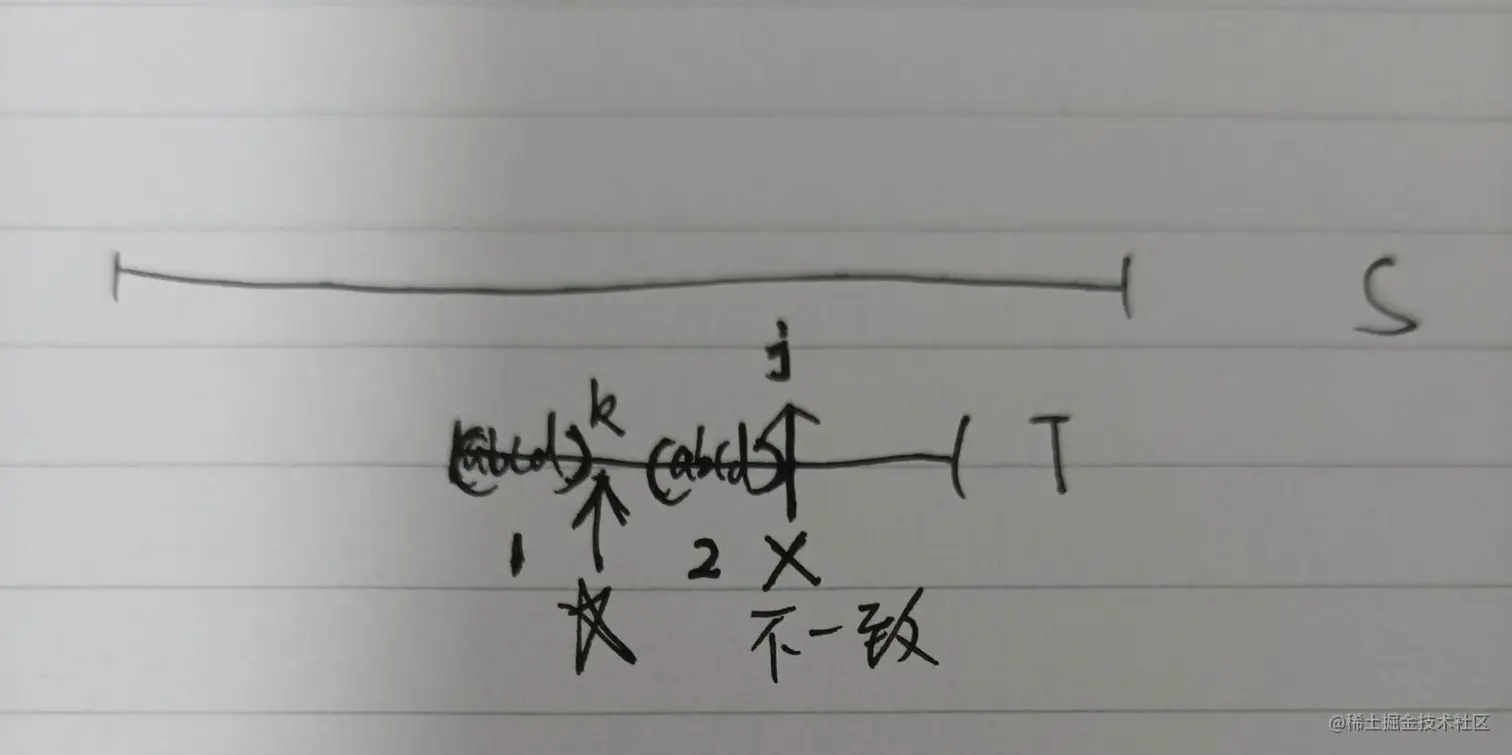 S
j
k
(abcd) (abcd) T
1 2 X
不一致
@稀土掘金技术社区